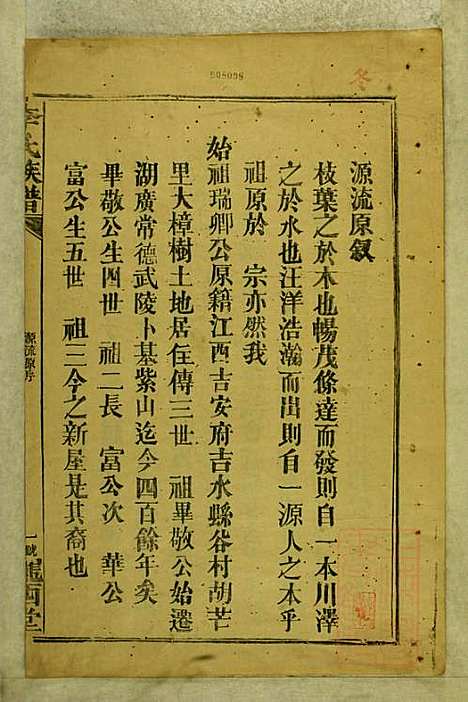 008098
源流原叙
枝葉之於木也暢茂條達而發則自一本川澤
之於水也汪洋浩瀚而出則自一源人之本乎
祖原於　宗亦然我
始祖瑞卿公原籍江西吉安府吉水縣谷村胡芒
里大樟樹土地居住傳三世　祖畢敬公始遷
湖廣常德武陵卜基紫山迄今四百餘年矣
畢敬公生四世　祖二長　富公次　華公
富公生五世　祖三今之新屋是其裔也
李氏族譜
源流原序
一號